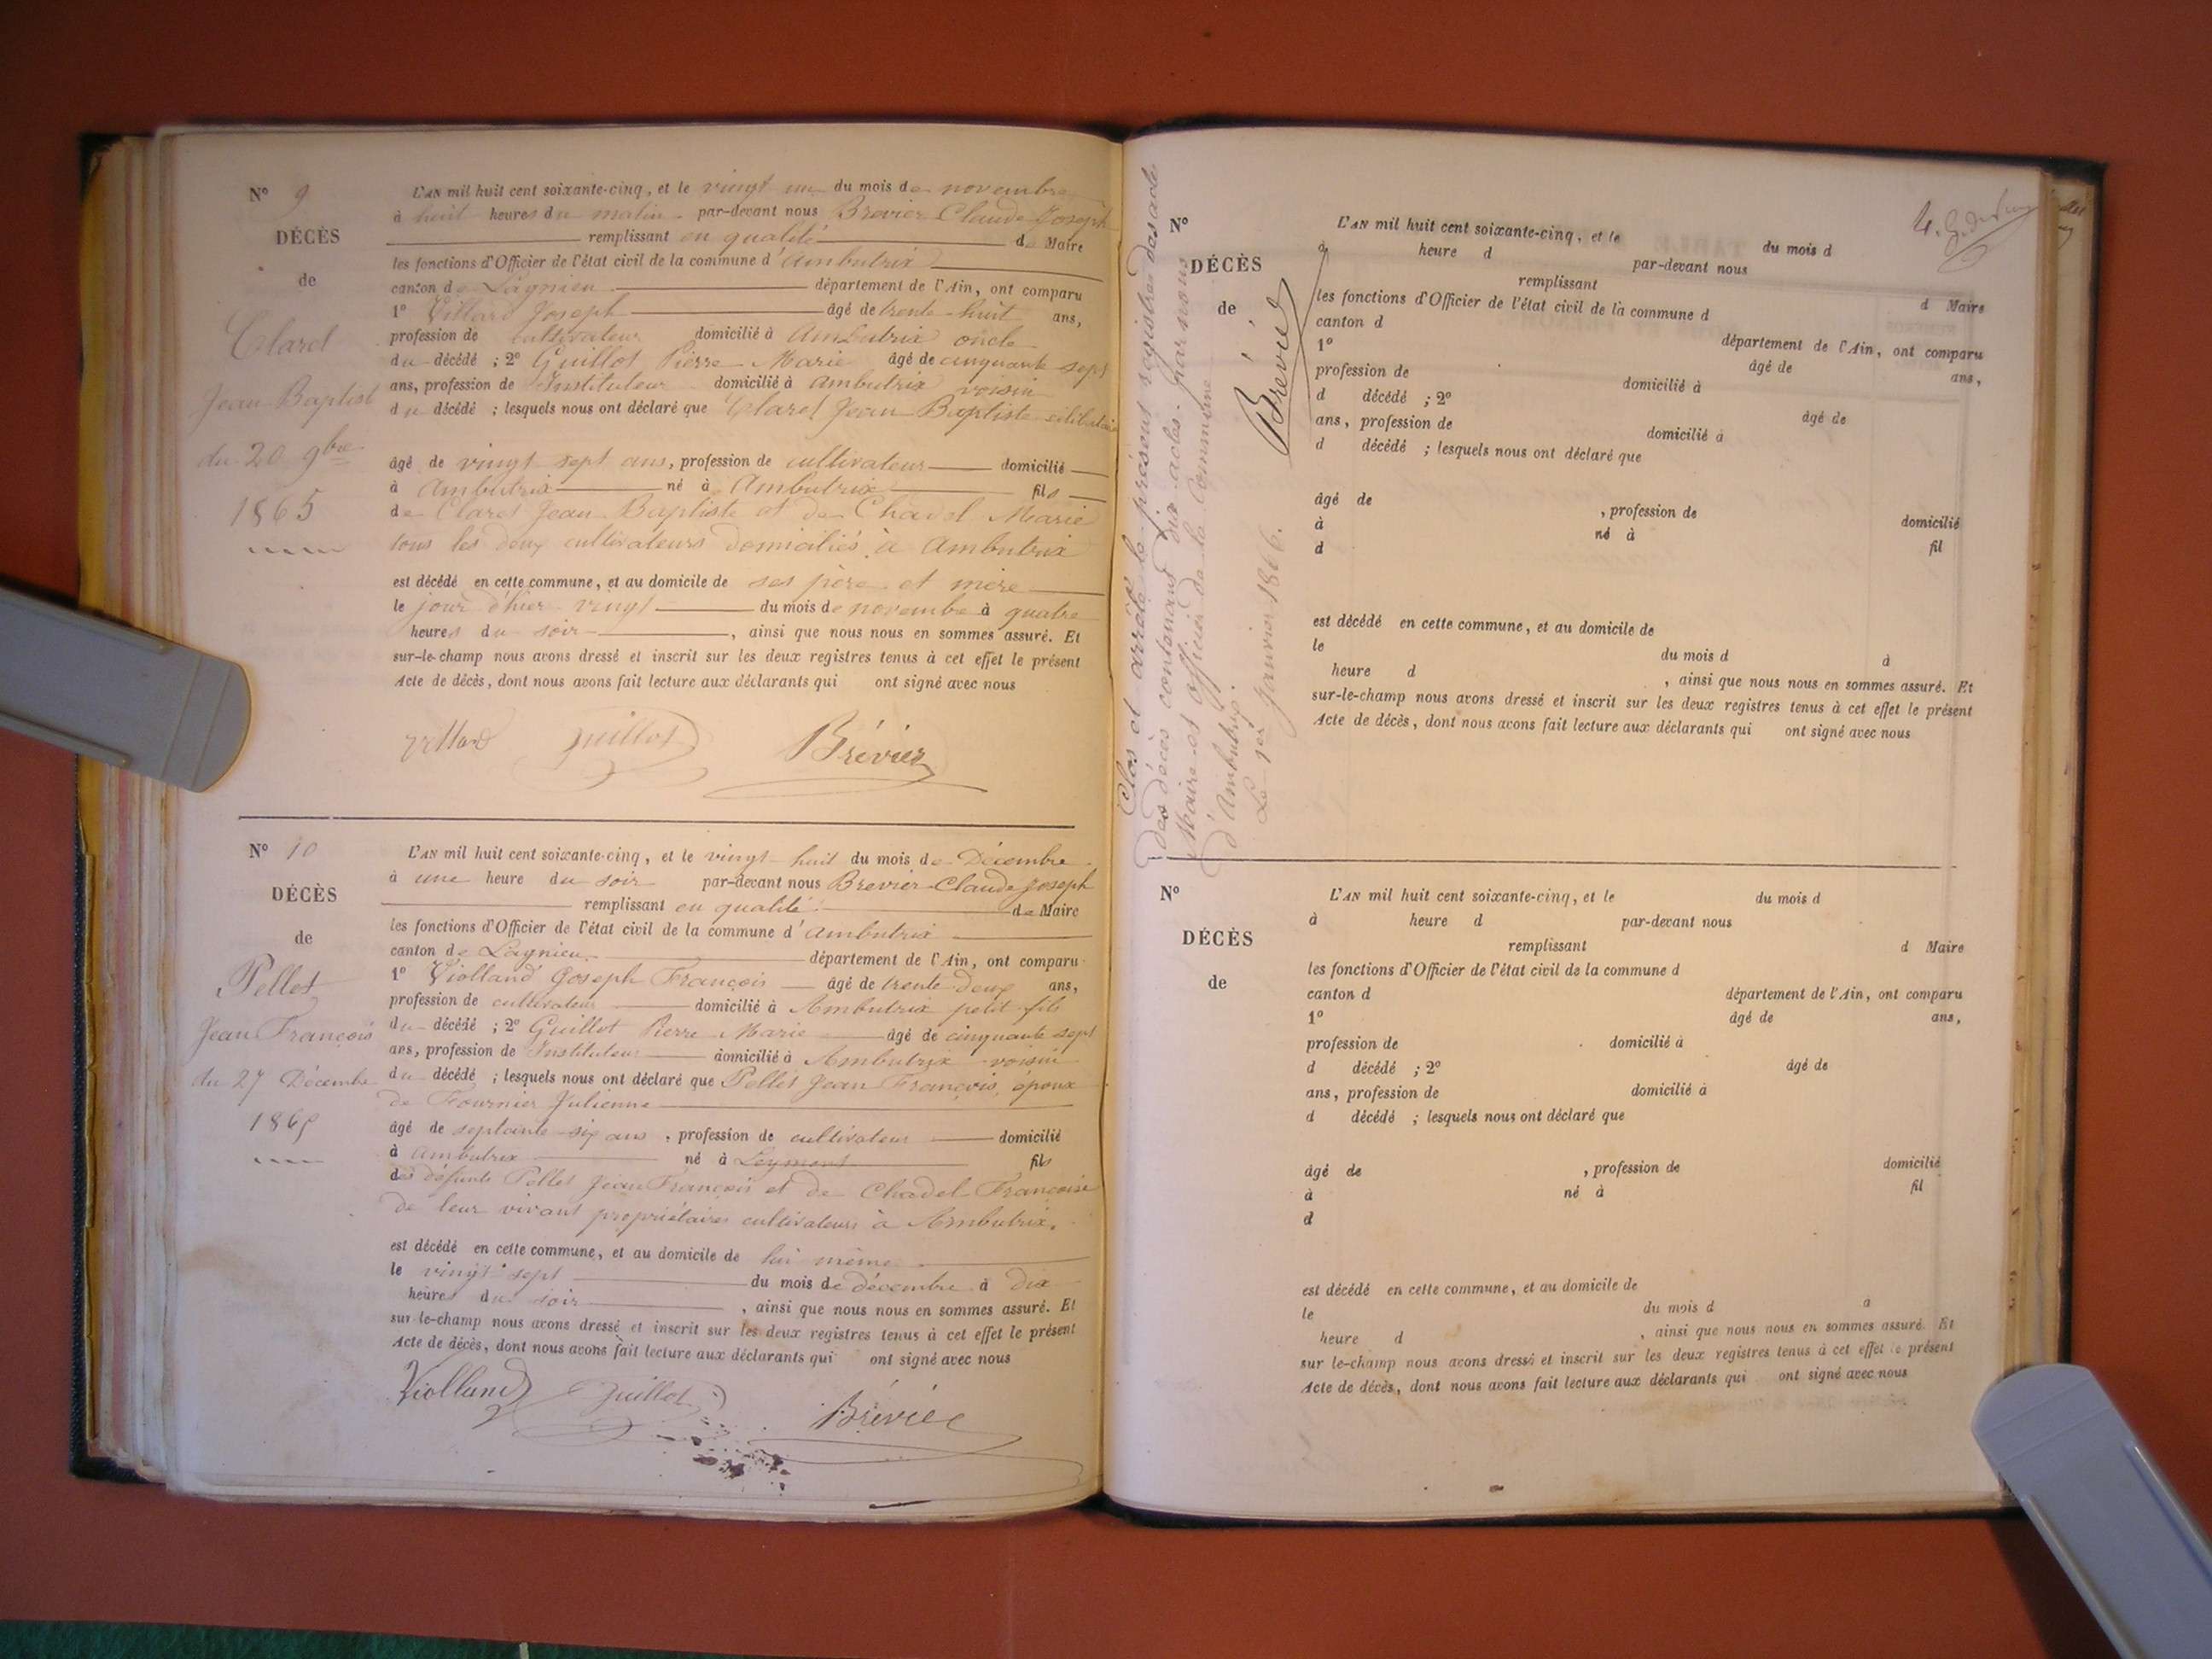 N° 9
DÉCÈS
de
Claret
Jean Baptist
du 20 9bre
1865
L'AN mil huit cent soixante-cinq, et le vingt un du mois de novembre
à huit heures du matin par-devant nous Brevier Claude Joseph
remplissant en qualité de Maire
les fonctions d'Officier de l'état civil de la commune d'Ambutrix
canton de Lagnieu département de l'Ain, ont comparu
1° Villard Joseph âgé de trente-huit ans,
profession de cultivateur domicilié à Ambutrix oncle
du décédé ; 2° Guillot Pierre Marie âgé de cinquante sept
ans, profession de Instituteur domicilié à Ambutrix voisin
du décédé ; lesquels nous ont déclaré que Claret Jean Baptiste célibataire
âgé de vingt sept ans, profession de cultivateur domicilié
à Ambutrix né à Ambutrix fils
de Claret Jean Baptiste et de Chadel Marie
tous les deux cultivateurs domiciliés à Ambutrix
est décédé en cette commune, et au domicile de ses père et mère
le jour d'hier vingt du mois de novembre à quatre
heures du soir, ainsi que nous nous en sommes assuré. Et
sur-le-champ nous avons dressé et inscrit sur les deux registres tenus à cet effet le présent
Acte de décès, dont nous avons fait lecture aux déclarants qui ont signé avec nous
villard Guillot Brévier
N° 10
DÉCÈS
de
Pellet
Jean François
du 27 Décembre
1865
L'AN mil huit cent soixante-cinq, et le vingt-huit du mois de Décembre
à une heure du soir par-devant nous Brevier Claude Joseph
remplissant en qualité de Maire
les fonctions d'Officier de l'état civil de la commune d'Ambutrix
canton de Lagnieu département de l'Ain, ont comparu
1° Violland Joseph François âgé de trente deux ans,
profession de cultivateur domicilié à Ambutrix petit-fils
du décédé ; 2° Guillot Pierre Marie âgé de cinquante sept
ans, profession de Instituteur domicilié à Ambutrix voisin
du décédé ; lesquels nous ont déclaré que Pellet Jean François, époux
de Fournier Julienne
âgé de septante-six ans, profession de cultivateur domicilié
à Ambutrix né à Leyment fils
des défunts Pellet Jean François et de Chadel Françoise
de leur vivant propriétaires cultivateurs à Ambutrix.
est décédé en cette commune, et au domicile de lui même
le vingt sept du mois de décembre à dix
heures du soir, ainsi que nous nous en sommes assuré. Et
sur-le-champ nous avons dressé et inscrit sur les deux registres tenus à cet effet le présent
Acte de décès, dont nous avons fait lecture aux déclarants qui ont signé avec nous
Violland Guillot Brévier
Clos et arrêté le présent registre des actes
des décès contenant dix actes par nous
Maire et officier de la Commune
d'Ambutrix.
Le 1er Janvier 1866.
Brévier
N°
DÉCÈS
de
L'AN mil huit cent soixante-cinq, et le du mois d
à heure d par-devant nous
remplissant d Maire
les fonctions d'Officier de l'état civil de la commune d
canton d département de l'Ain, ont comparu
1° âgé de ans,
profession de domicilié à
d décédé ; 2° âgé de
ans, profession de domicilié à
d décédé ; lesquels nous ont déclaré que
âgé de , profession de domicilié
à né à fil
d
est décédé en cette commune, et au domicile de
le du mois d à
heure d , ainsi que nous nous en sommes assuré. Et
sur-le-champ nous avons dressé et inscrit sur les deux registres tenus à cet effet le présent
Acte de décès, dont nous avons fait lecture aux déclarants qui ont signé avec nous
N°
DÉCÈS
de
L'AN mil huit cent soixante-cinq, et le du mois d
à heure d par-devant nous
remplissant d Maire
les fonctions d'Officier de l'état civil de la commune d
canton d département de l'Ain, ont comparu
1° âgé de ans,
profession de domicilié à
d décédé ; 2° âgé de
ans, profession de domicilié à
d décédé ; lesquels nous ont déclaré que
âgé de , profession de domicilié
à né à fil
d
est décédé en cette commune, et au domicile de
le du mois d à
heure d , ainsi que nous nous en sommes assuré. Et
sur le-champ nous avons dressé et inscrit sur les deux registres tenus à cet effet le présent
Acte de décès, dont nous avons fait lecture aux déclarants qui ont signé avec nous